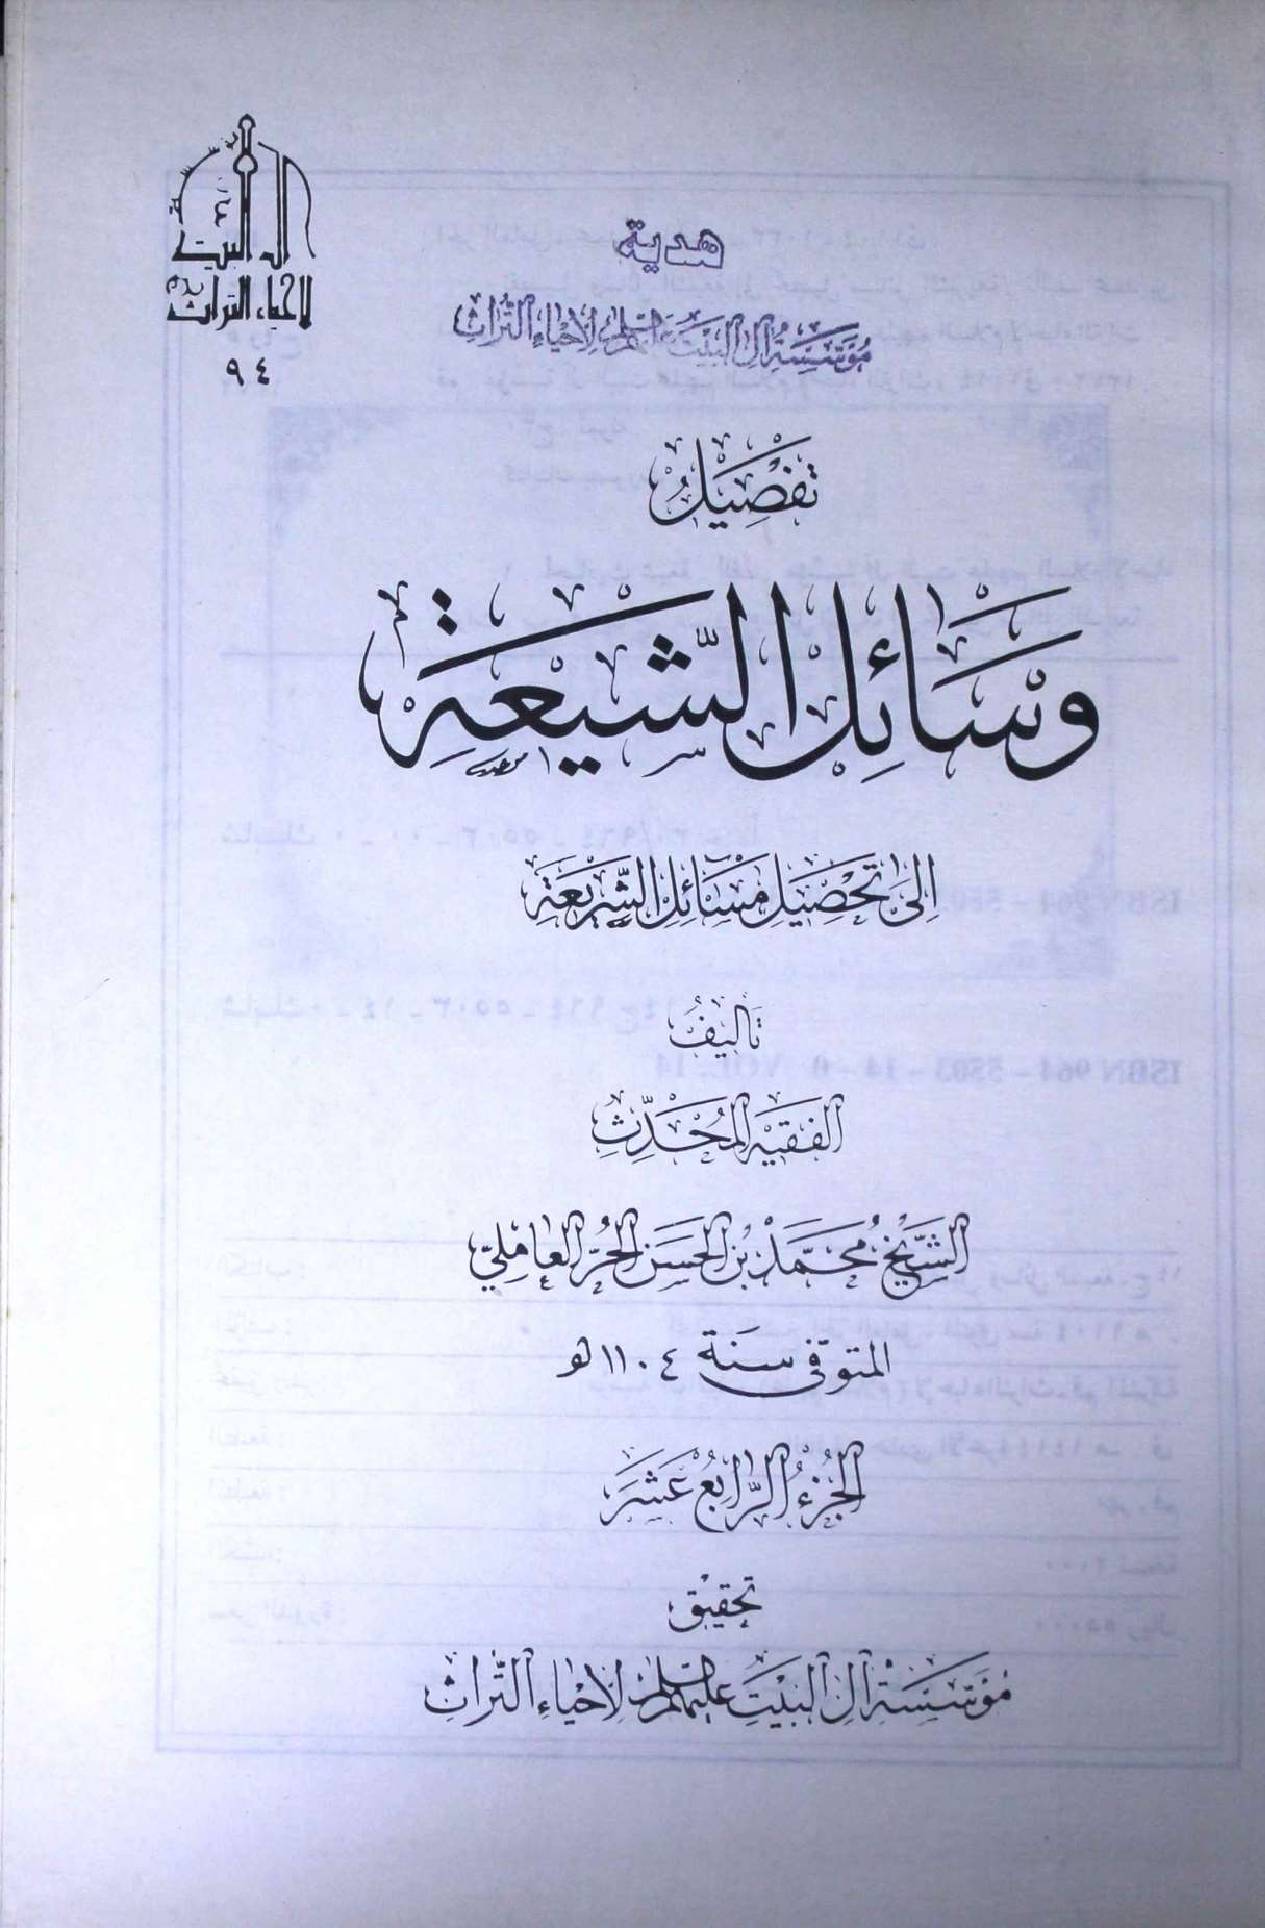 آل البيت
لاحياء التراث
٩٤
هدية
مؤسسة آل البيت عليهم السلام لإحياء التراث
تفصيل
وسائل الشيعة
إلى تحصيل مسائل الشريعة
تأليف
الفقيه المحدث
الشيخ محمد بن الحسن الحر العاملي
المتوفى سنة ١١٠٤ هـ
الجزء الرابع عشر
تحقيق
مؤسسة آل البيت عليهم السلام لإحياء التراث